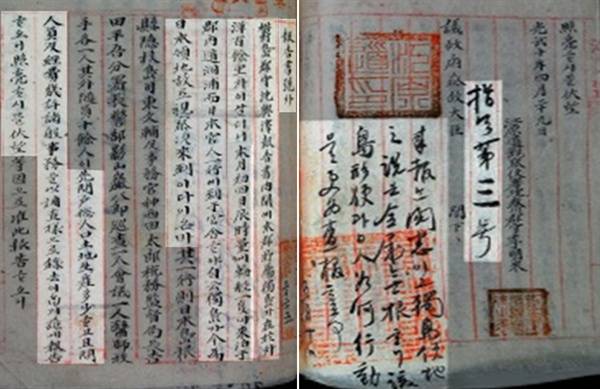 報告書號外
鬱島郡守沈興澤報告書內開에本郡所屬獨島가在於外
洋百餘里外이살더니本月初四日辰時量에輪船一隻이來泊于
郡內道洞浦而日本官人一行이到于官舍ᄒᆞ야自云獨島가今爲
日本領地故로視察次來到이다이온바其一行則日本島根
縣隱技島司東文輔及事務官神西田太郞稅務監督局長吉
田平吾分署長警部影山巖八郞巡査一人會議一人醫師技
手各一人其外隨員十餘人이先問戶總人口土地生産多少ᄒᆞ고且問
人員及經費幾許諸般事務를以調査樣으로錄去이ᄋᆞᆸ기玆에報告
ᄒᆞ오니照亮ᄒᆞ시믈伏望等因으로准此報告ᄒᆞ오니
照亮ᄒᆞ시믈伏望
光武十年四月二十九日
江原道觀察使署理春川郡守李明來
議政府參政大臣 閣下
指令第三号
來報는閱悉이고獨島領地
之說은全屬無根ᄒᆞ나該
島形便과日人如何行動
을更爲査報ᄒᆞᆯ事